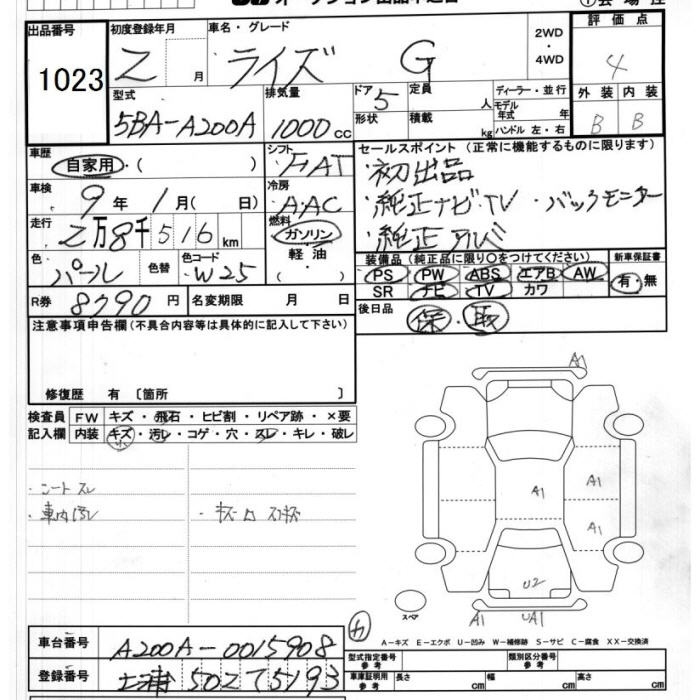 出品番号 初度登録年月 車名・グレード 2WD ・ 4WD 評価点
1023 2 月 ライズ G 4
型式 排気量 ドア 5 定員 人 ディーラー・並行 外装 内装
5BA-A200A 1000cc 形状 積載 kg モデル年式 年 ハンドル 左・右 B B
車歴 シフト セールスポイント (正常に機能するものに限ります)
自家用・( ) FAT ・初出品
車検 冷房 ・純正ナビTV ・バックモニター
9年 1月( 日) A・AC ・純正アルミ
走行 2万8千516km 燃料 ガソリン 軽油 ・( )
装備品 (純正品に限り○をつけてください) 新車保証書
色 パール 色替 色コード W25 PS PW ABS エアB AW 有・無
SR ナビ TV カワ
R券 8790円 名変期限 月 日 後日品 保・取
注意事項申告欄 (不具合内容等は具体的に記入して下さい)
修復歴 有 〔箇所 〕
検査員 FW キズ・飛石・ヒビ割・リペア跡・×要
記入欄 内装 キズ・汚レ・コゲ・穴・スレ・キレ・破レ
・シートスレ
・車内汚レ
A1
A1 A1
A1
U2
スペア A1 UA1
A-キズ E-エクボ U-凹み W-補修跡 S-サビ C-腐食 XX-交換済
車台番号 A200A-0015908 型式指定番号 参考 類別区分番号 参考
登録番号 土浦 502 て 5193 車庫証明用 参考 長さ cm 幅 cm 高さ cm